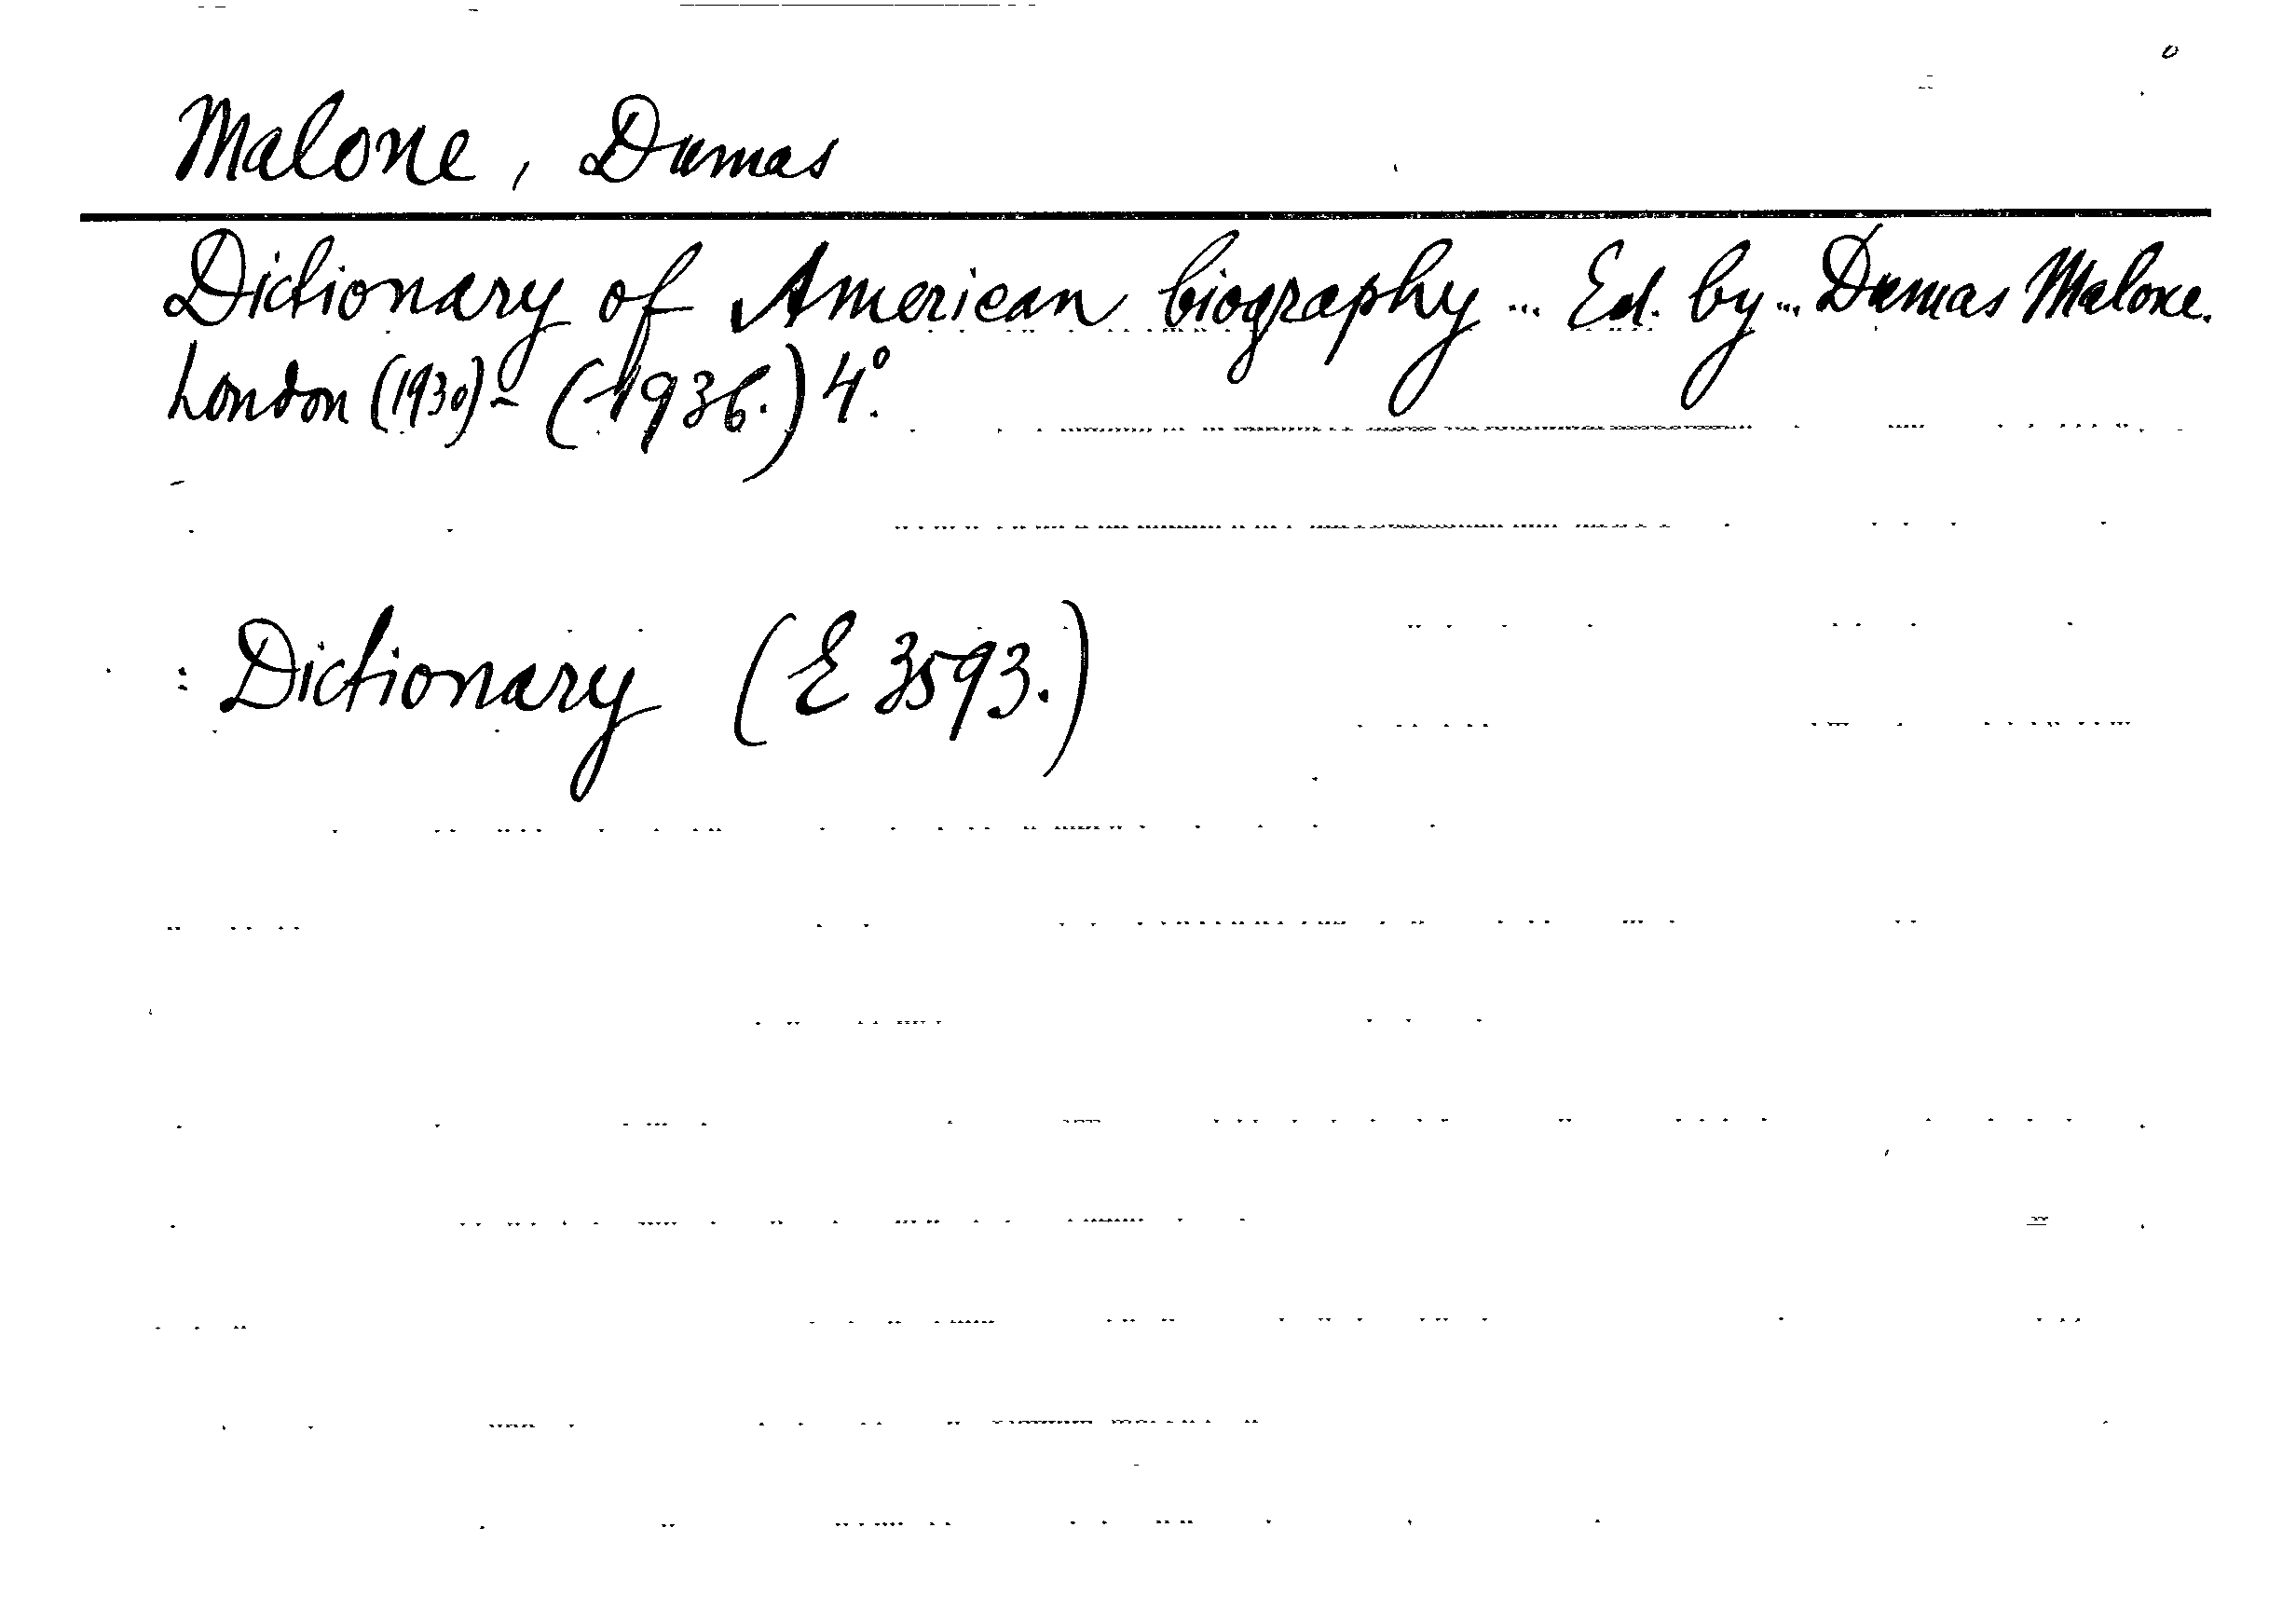 Malone, Dumas
Dictionary of American biography ... Ed. by ... Dumas Malone.
London (1930)- (-1936.) 4°.
: Dictionary (E 3593.)